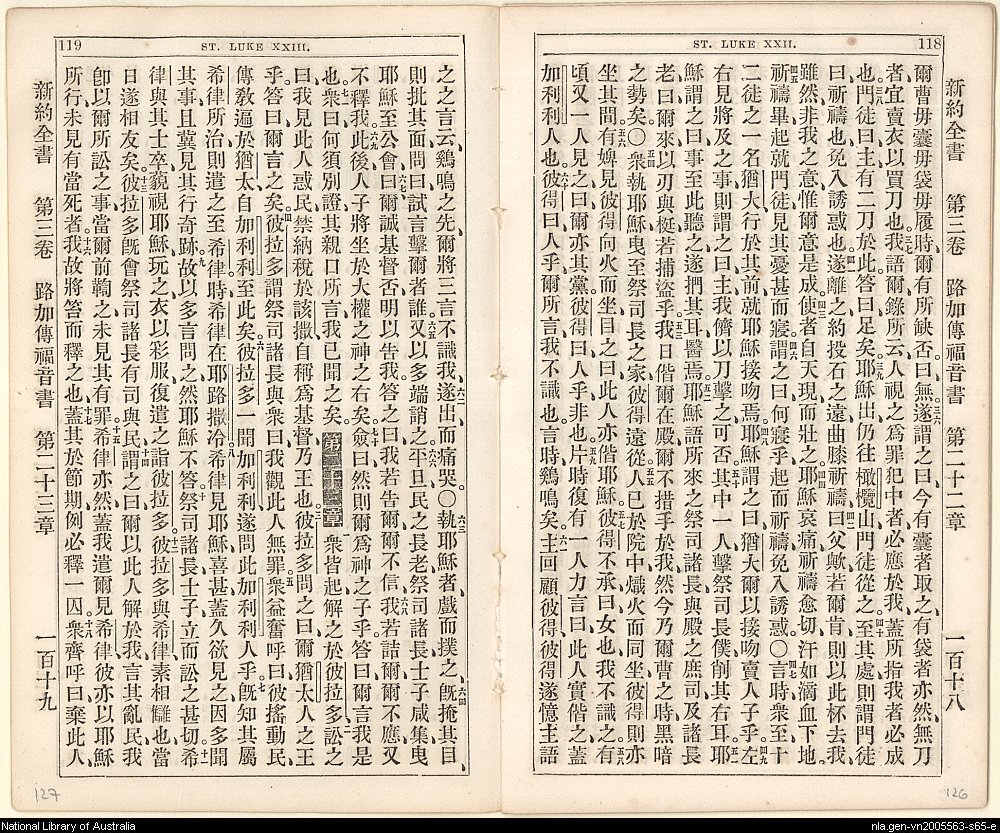 118
ST. LUKE XXII.
新約全書 第三卷 路加傳福音書 第二十二章 一百十八
爾曹毋囊毋袋毋履時、爾有所缺否。曰無。遂謂之曰、今有囊者取之、有袋者亦然、無刀
者宜賣衣以買刀也。我語爾錄所云、人視之爲罪犯中者、必應於我。蓋所指我者必成
也。門徒曰、主有二刀於此。答曰足矣。耶穌出仍往橄欖山、門徒從之。至其處、則謂門徒
曰、祈禱也、免入誘惑也。遂離之約投石之遠、曲膝祈禱曰、父歟、若爾肯則以此杯去我、
雖然、非我之意、惟爾意是成。使者自天現而壯之。耶穌哀痛祈禱愈切、汗如滴血下地。
祈禱畢起就門徒、見其憂甚而寢。謂之曰、何寢乎、起而祈禱、免入誘惑。○言時、衆至、十
二徒之一名猶大行於其前、就耶穌接吻焉。耶穌謂之曰、猶大爾以接吻賣人子乎。左
右見將及之事、則謂之曰、主、我儕以刀擊之可否。其中一人擊祭司長僕、削其右耳。耶
穌謂之曰、事至此聽之。遂捫其耳、醫焉。耶穌語所來之祭司諸長與殿之庶司及諸長
老曰、爾來以刃與梃、若捕盜乎。我日偕爾在殿、爾不措手於我、然今乃爾曹之時、黑暗
之勢矣。○衆執耶穌、曳至祭司長之家、彼得遠從。人已於院中熾火而同坐、彼得則亦
坐其間。有婢見彼得向火而坐、目之曰、此人亦偕耶穌。彼得不承曰、女也、我不識之。有
頃又一人見之曰、爾亦其黨。彼得曰、人乎、非也。片時復有一人力言曰、此人實偕之、蓋
加利利人也。彼得曰、人乎、爾所言我不識也。言時、鷄鳴矣。主回顧彼得、彼得遂憶主語
126
119
ST. LUKE XXIII.
之之言云、鷄鳴之先、爾將三言不識我。遂出而痛哭。○執耶穌者、戲而撲之、旣掩其目、
則批其面、問曰、試言擊爾者誰。又以多端誚之。平旦民之長老祭司諸長士子咸集、曳
耶穌至公會曰、爾誠基督否、明以告我。答之曰、我若告爾、爾不信、我若詰爾、爾不應、又
不釋我。此後人子將坐於大權之神之右矣。僉曰、然則爾爲神之子乎。答曰、爾言我是
也。衆曰、何須別證、其親口所言我已聞之矣。第二十三章 衆皆起、解之於彼拉多、訟之
曰、我見此人惑民禁納稅於該撒、自稱爲基督乃王也。彼拉多問之曰、爾猶太人之王
乎。答曰、爾言之矣。彼拉多謂祭司諸長與衆曰、我觀此人無罪。衆益奮呼曰、彼搖動民、
傳敎遍於猶太、自加利利至此矣。彼拉多一聞加利利、遂問此加利利人乎。旣知其屬
希律所治、則遣之至希律、時希律在耶路撒冷。希律見耶穌喜甚、蓋久欲見之、因多聞
其事、且冀見其行奇跡。故以多言問之、然耶穌不答。祭司諸長士子、立而訟之甚切。希
律與其士卒藐視耶穌玩之、衣以彩服、復遣之詣彼拉多。彼拉多與希律素相讎也、當
日遂相友矣。彼拉多旣會祭司諸長有司與民、謂之曰、爾以此人解於我、言其亂民、我
卽以爾所訟之事、當爾前鞫之、未見其有罪。希律亦然、蓋我遣爾見希律、彼亦以耶穌
所行未見有當死者。我故將笞而釋之也。蓋其於節期例必釋一囚。衆齊呼曰、棄此人、
新約全書 第三卷 路加傳福音書 第二十三章 一百十九
127
National Library of Australia
nla.gen-vn2005563-s65-e